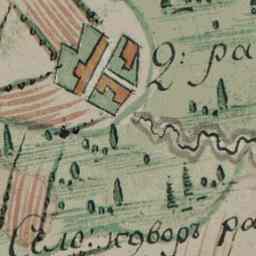 2: ра
Село: ждворъ ра